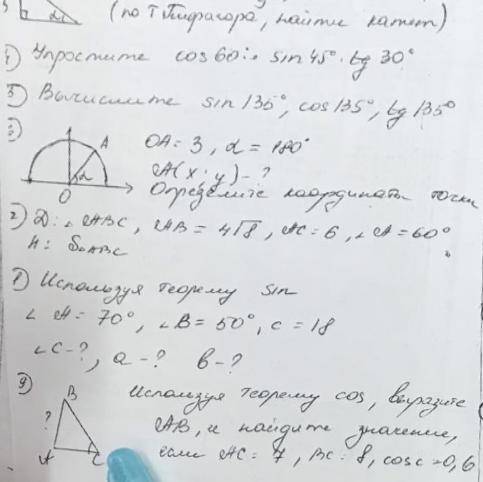 (по Т Пифагора, найти катет)
α
4) Упростите cos60°: sin 45° · tg 30°
5) Вычислите sin 135°, cos 135°, tg 135°
6)
A
α
O
OA = 3, α = 180°
A(x; y) - ?
Определите координаты точки
7) Д: ∠ABC, AB = 4√8, AC = 6, ∠A = 60°
H: S△ABC
8) Используя теорему sin
∠A = 70°, ∠B = 50°, c = 18
∠C - ?, a - ? b - ?
9)
B
?
A
C
Используя теорему cos, выразите
AB, и найдите значение,
если AC = 7, BC = 8, cosc = 0,6